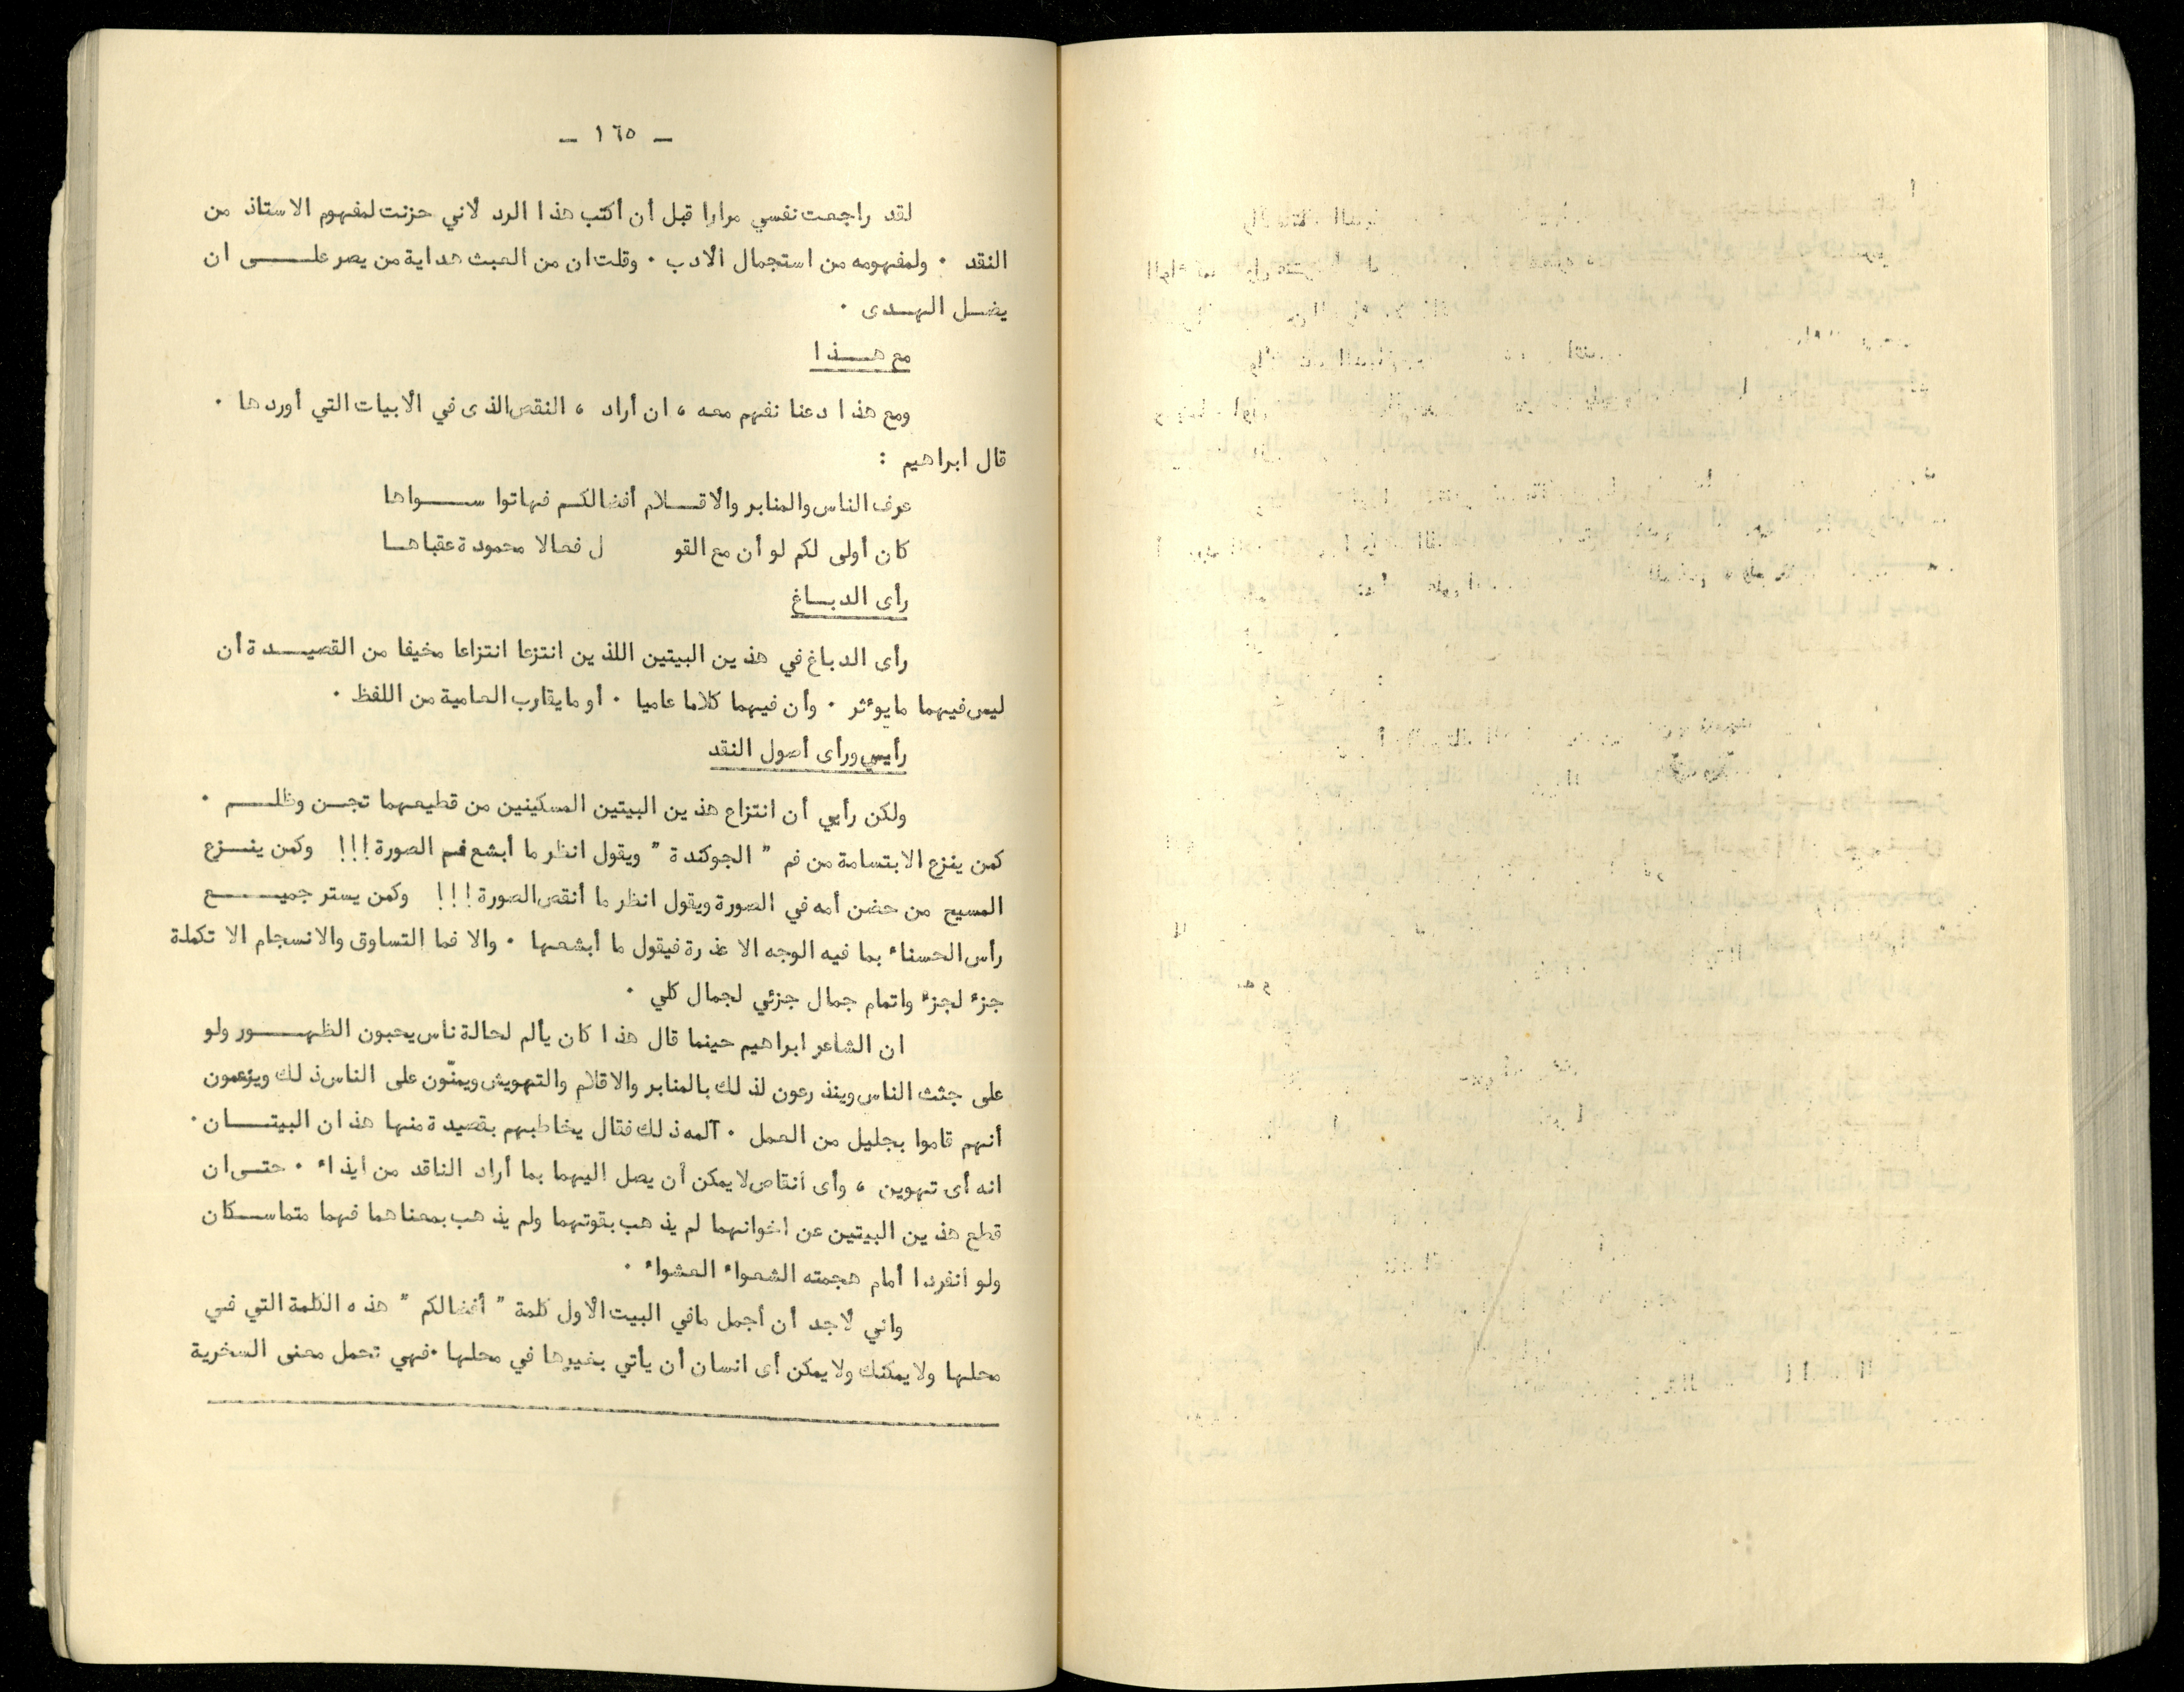 – ١٦٥ –
لقد راجعت نفسي مرارا قبل أن أكتب هذا الرد لأني حزنت لمفهوم الاستاذ من
النقد ٠ ولمفهومه من استجمال الأدب ٠ وقلت ان من العبث هداية من يصر علـــى ان
يضـل الهـدى ٠
مع هـــذا
ومع هذا دعنا نفهم معه ، ان أراد ، النقص الذى في الأبيات التي أوردها ٠
قال ابراهيم :
عرف الناس والمنابر والأقـــلام أفضالكـم فهاتوا ســـواها
كان أولى لكم لو أن مع القو ل فعالا محمودة عقباهـا
رأى الدبـاغ
رأى الدباغ في هذين البيتين اللذين انتزعا انتزاعا مخيفا من القصيـــدة أن
ليس فيهما مايوءثر ٠ وأن فيهما كلاما عاميا ٠ أو مايقارب العامية من اللفظ ٠
رأيي ورأى أصول النقد
ولكن رأيي أن انتزاع هذين البيتين المسكينين من قطيعهما تجـن وظلـــم ٠
كمن ينزع الابتسامة من فم " الجوكندة " ويقول انظر ما أبشع فم الصورة !!! وكمن ينـــزع
المسيح من حضن أمه في الصورة ويقول انظر ما أنقص الصورة !!! وكمن يستر جميــــع
رأس الحسناء بما فيه الوجه الا عذرة فيقول ما أبشعها ٠ والا فما التساوق والانسجام الا تكملة
جزء لجزء واتمام جمال جزئي لجمال كلي ٠
ان الشاعر ابراهيم حينما قال هذا كان يألم لحالة ناس يحبون الظهـــور ولو
على جثث الناس وينذرعون لذلك بالمنابر والاقلام والتهويش ويمنّون على الناس ذلك ويزعمون
أنهم قاموا بجليل من العمل ٠ آلمه ذلك فقال يخاطبهم بقصيدة منها هذان البيتـــان ٠
انه أى تهوين ، وأى أنقاص لا يمكن أن يصل اليهما بما أراد الناقد من ايذاء ٠ حتـى ان
قطع هذين البيتين عن اخوانهما لم يذهب بقوتهما ولم يذهب بمعناهما فهما متماســكان
ولو انفردا أمام هجمته الشعواء العشواء ٠
واني لأجد أن أجمل مافي البيت الأول كلمة " أفضالكم " هذه الكلمة التي فـي
محلها ولا يمكنك ولا يمكن أى انسان أن يأتي بغيرها في محلها ٠ فهي تحمل معنى السخرية